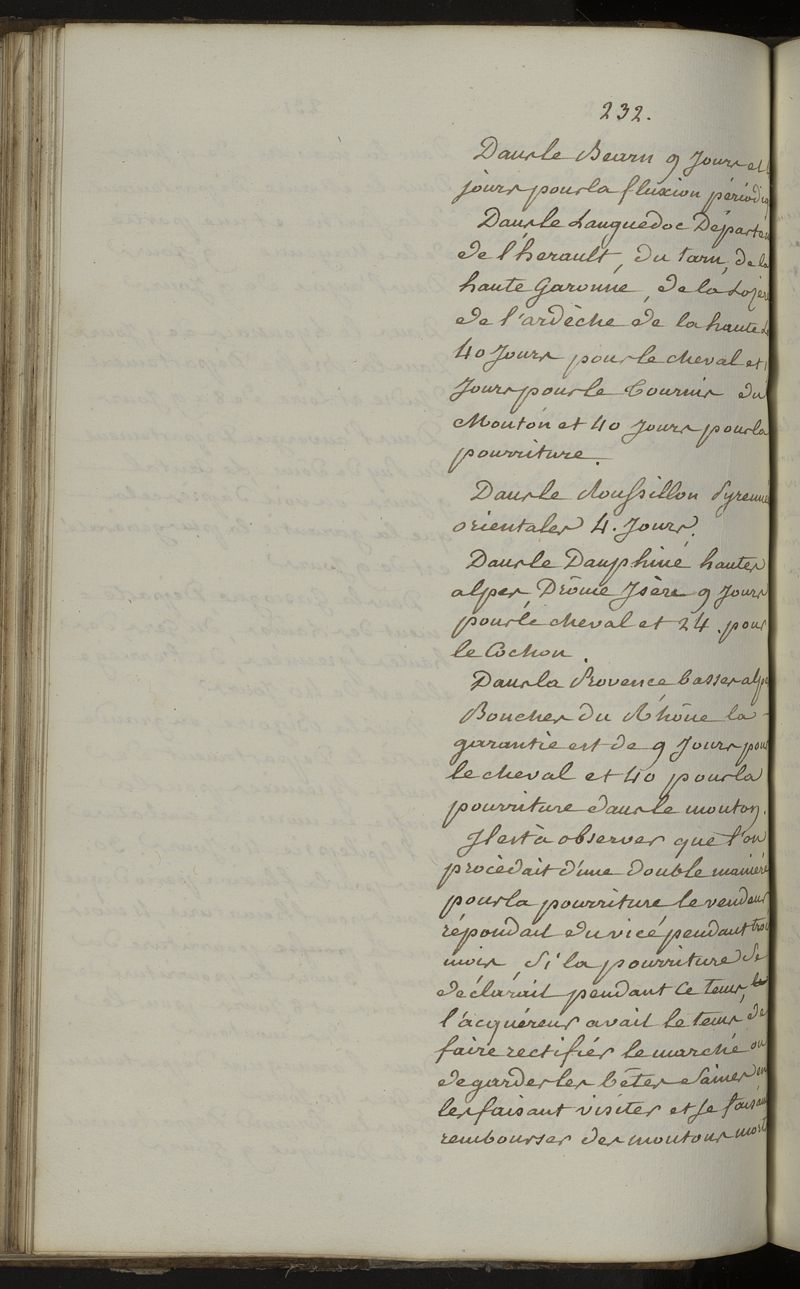 232.
Dans le Bearn 9 Jours et
jours pour la fluxion périodiq
Dans le Languedoc Départem
de l'herault, du tarn, de la
haute Garonne, de la Lozèr
de l'ardèche de la haute L
40 Jours pour le cheval et
Jours pour le Tournis du
Mouton et 40 Jours pour la
pourriture.
Dans le Roussillon Pyrenné
orientales 4. Jours.
Dans le Dauphiné hautes
alpes Drôme Isère 9 Jours
pour le cheval et 24. pour
le Cochon.
Dans la Provence basses alp
Bouches du Rhône la
garantie est de 9 Jours pour
le cheval et 40 pour la
pourriture dans le mouton.
Il est à observer que l'on
procédait d'une double manière
pour la pourriture le vendeur
répondait du vice pendant troi
mois, Si la pourriture Se
déclarait pendant Ce tems,
l'acquéreur avait le tems de
faire rectifier le marché ou
de garder les bêtes Saines en
les faisant visiter et Se faisan
rembourser des moutons mort